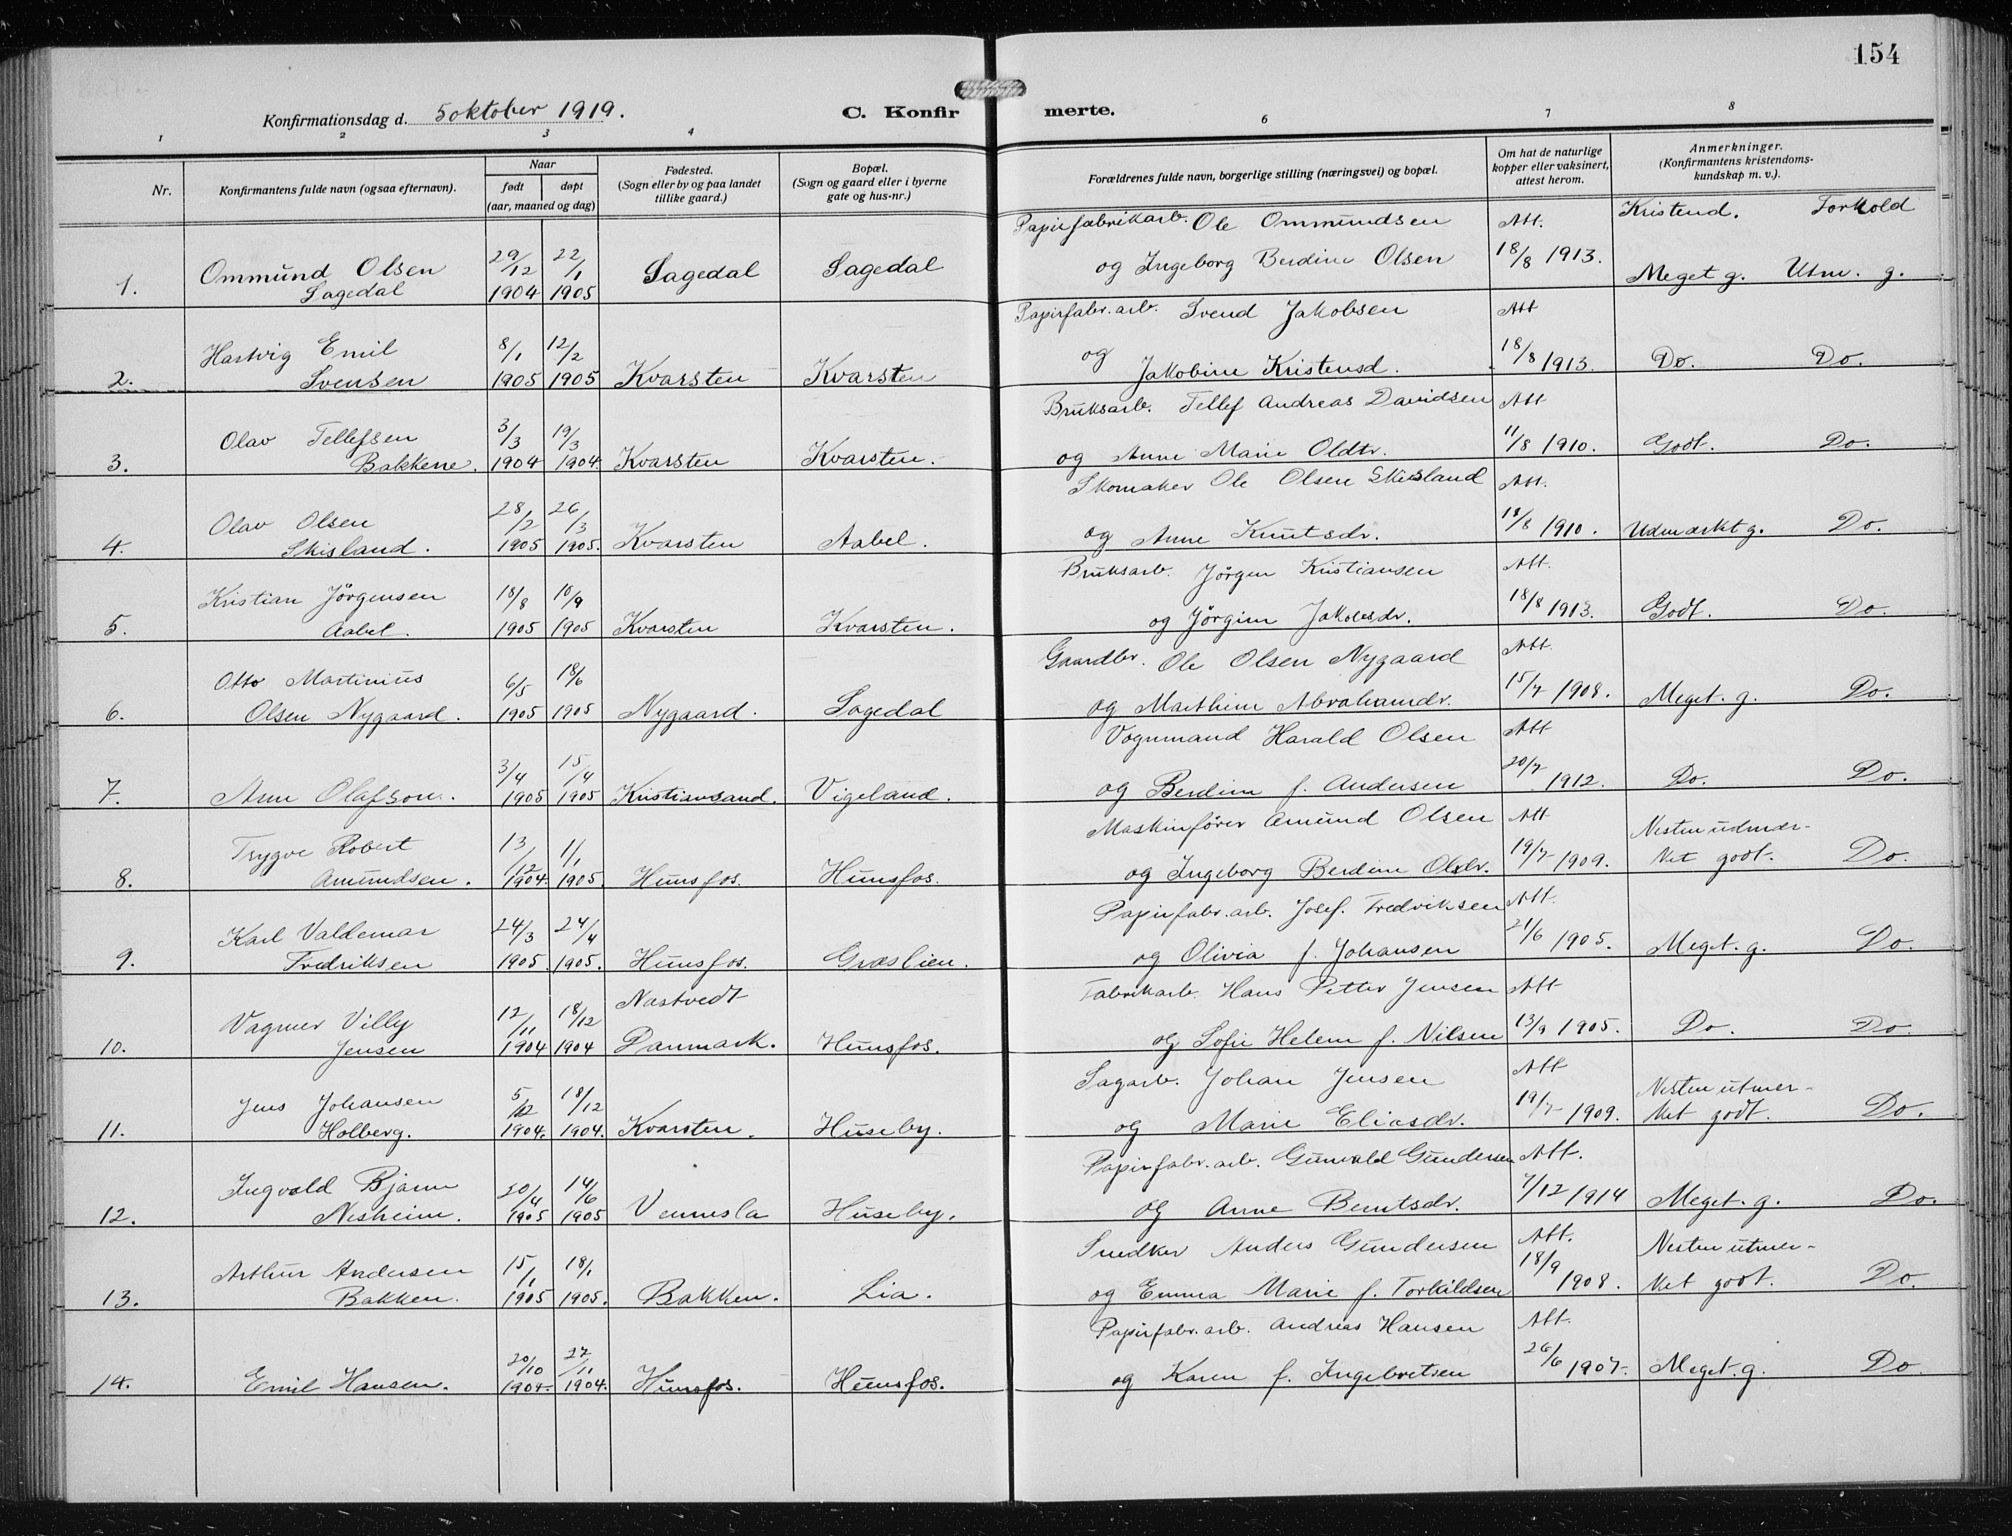 154
Konfirmationsdag d. 5 oktober 1919.
C. Konfirmerte.
1 2 3 4 6 7 8
Nr.
Konfirmantens fulde navn (ogsaa efternavn).
Naar
født døpt
(aar, maaned og dag)
Fødested.
(Sogn eller by og paa landet
tillike gaard.)
Bopæl.
(Sogn og gaard eller i byerne
gate og hus-nr.)
Forældrenes fulde navn, borgerlige stilling (næringsvei) og bopæl.
Om hat de naturlige
kopper eller vaksinert,
attest herom.
Anmerkninger.
(Konfirmantens kristendoms-
kundskap m. v.).
Papirfabrikarb. Ole Ommundsen Att. Kristend. Forhold
Ommund Olsen 29/12 22/1 Sagedal Sagedal og Ingeborg Berdine Olsen 18/8 1913.
1. Sagedal 1904 1905 Meget g. Utm. g.
Papirfabr. arb. Svend Jakobsen Att
Hartvig Emil 8/1 12/2 og
2. Svensen 1905 1905 Kvarsten Kvarsten Jakobine Kristensd. 18/8 1913. Do. Do.
Bruksarb. Tellef Andreas Davidsen Att
Olav Tellefsen 3/3 19/3
3. Bakkene. 1904 1904. Kvarsten Kvarsten. og Anne Marie Oldtr. 11/8 1910. Godt. Do.
Skomaker Ole Olsen Skisland Att.
Olav Olsen 28/2 26/3
4. Skisland. 1905 1905. Kvarsten Aabel. og Anne Knutsdr. 18/8 1910. Udmerket g. Do.
Bruksarb. Jørgen Kristiansen Att.
Kristian Jørgensen 18/8 10/9
5. Aabel. 1905 1905 Kvarsten Kvarsten. og Jørgine Jakobsdr. 18/8 1913. Godt. Do.
Gaardbr. Ole Olsen Nygaard Att.
Otto Martinius 6/5 18/6
6. Olsen Nygaard. 1905 1905 Nygaard. Sagedal og Marthine Abrahamdr. 15/7 1908. Meget. g. Do.
Vognmand Harald Olsen Att
3/4 15/4
7. Arne Olafson. 1905 1905 Kristiansand. Vigeland. og Berdine f. Andersen 20/7 1912. Do. Do.
Maskinfører Amund Olsen Att
Trygve Robert 13/12 1/1 Nesten udmer-
8. Amundsen. 1904. 1905. Hunsfos. Hunsfos. og Ingeborg Berdine Olsdr. 19/7 1909. ket godt. Do.
Papirfabr. arb. Josef. Fredriksen Att.
Karl Valdemar 24/3 24/4
9. Fredriksen 1905 1905. Hunsfos. Græslien. og Olivia f. Johansen 21/6 1905. Meget. g. Do.
Fabrikarb. Hans Petter Jensen Att
Vagner Villy 12/11 18/12 Nastvedt
10. Jensen 1904 1904 Danmark. Hunsfos. og Sofie Helene f. Nilsen 13/9 1905. Do. Do.
Sagarb. Johan Jensen Att
Jens Johansen 5/12 18/12 Nesten utmer-
11. Holberg. 1904. 1904. Kvarsten. Huseby. og Marie Eliasdr. 19/7 1909. ket godt. Do.
Papirfabr. arb. Gunvald Gundersen Att.
Ingvald Bjarne 20/4 14/6
12. Nesheim. 1905 1905 Vennesla Huseby. og Anne Berntsdr. 7/12 1914 Meget. g. Do.
Snedker Anders Gundersen Att.
Arthur Andersen 15/1 18/1 18/9 Nesten utmer-
13. Bakken. 1905 1905. Bakken. Lia. og Emma Marie f. Torkildsen 1908. ket godt. Do.
Papirfabr. arb. Andreas Hansen Att.
20/10 27/11
14. Emil Hansen. 1904. 1904. Hunsfos. Hunsfos. og Karen f. Ingebretsen 26/6 1907. Meget. g. Do